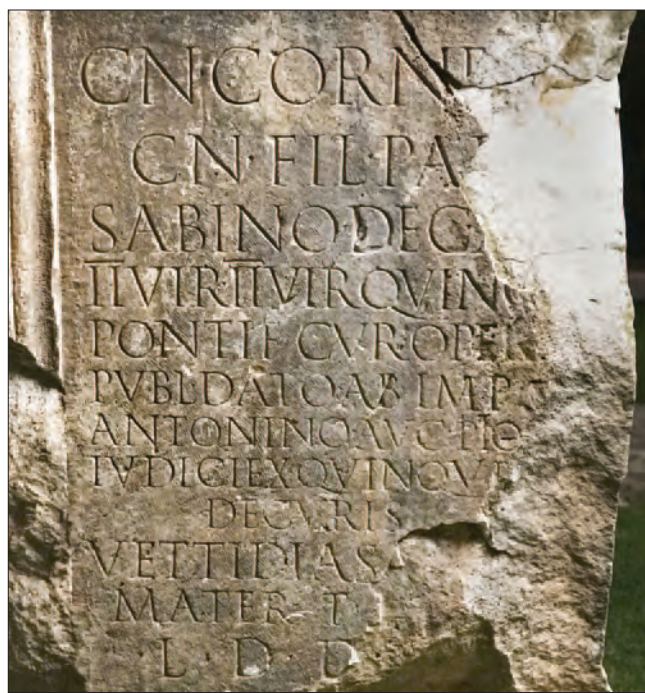 CN CORNE
CN · FIL · PA
SABINO DEC
IIVIR IIVIR QVIN
PONTIF CVR OPER
PVBL DATO AB IMP
ANTONINO AVG PIO
IVDICI EX QVINQVE
DECVRIS
VETTIDIA SA
MATER T
L · D · D